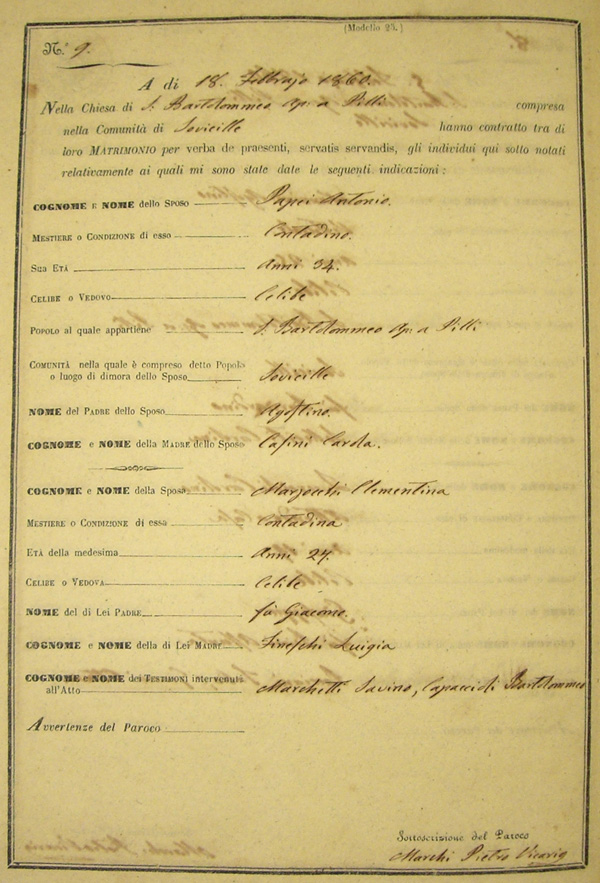 (Modello 25.)
N.º 9.
A di 18. Febbrajo 1860.
Nella Chiesa di S. Bartolommeo Ap: a Pilli compresa
nella Comunità di Sovicille hanno contratto tra di
loro MATRIMONIO per verba de praesenti, servatis servandis, gli individui qui sotto notati
relativamente ai quali mi sono state date le seguenti indicazioni:
COGNOME E NOME dello SPOSO Papei Antonio.
MESTIERE O CONDIZIONE di esso Contadino.
SUA ETÀ Anni 34.
CELIBE O VEDOVO Celibe
POPOLO al quale appartiene S. Bartolommeo Ap: a Pilli
COMUNITÀ nella quale è compreso detto Popolo
o luogo di dimora dello Sposo Sovicille
NOME del PADRE dello Sposo Agostino.
COGNOME e NOME della MADRE dello Sposo Casini Carola.
COGNOME e NOME della Sposa Marzocchi Clementina
MESTIERE O CONDIZIONE di essa Contadina
ETÀ della medesima Anni 27.
CELIBE O VEDOVA Celibe
NOME del di Lei PADRE fù Giacomo.
COGNOME e NOME della di Lei MADRE Fineschi Luigia
COGNOME e NOME dei TESTIMONI intervenuti
all'Atto Marchetti Savino, Capaccioli Bartolommeo
Avvertenze del Paroco
Sottoscrizione del Paroco
Marchi Pietro Vicario